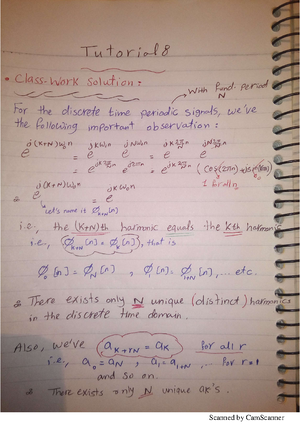 Tutorial 8
• Class-Work Solution:
with fund. period N
For the discrete time periodic signals, we've
the following important observation:
e^{j(K+N)ω₀n} = e^{jKω₀n} e^{jNω₀n} = e^{jK 2π/N n} e^{jN 2π/N n}
= e^{jK 2π/N n} e^{j2πn} = e^{jK 2π/N n} (cos(2πn) + j sin(2πn))
1 for all n
e^{j(K+N)ω₀n} = e^{jKω₀n}
Let's name it Φ_{K+N}[n]
i.e., the (K+N)th harmonic equals the Kth harmonic
i.e., Φ_{K+N}[n] = Φ_K[n], that is
Φ₀[n] = Φ_N[n], Φ₁[n] = Φ_{1+N}[n], .... etc.
There exists only N unique (distinct) harmonics
in the discrete time domain.
Also, we've a_{K+rN} = a_K for all r
i.e., a₀ = a_N, a₁ = a_{1+N}, ... for r=1
and so on.
There exists only N unique a_K's.
Scanned by CamScanner